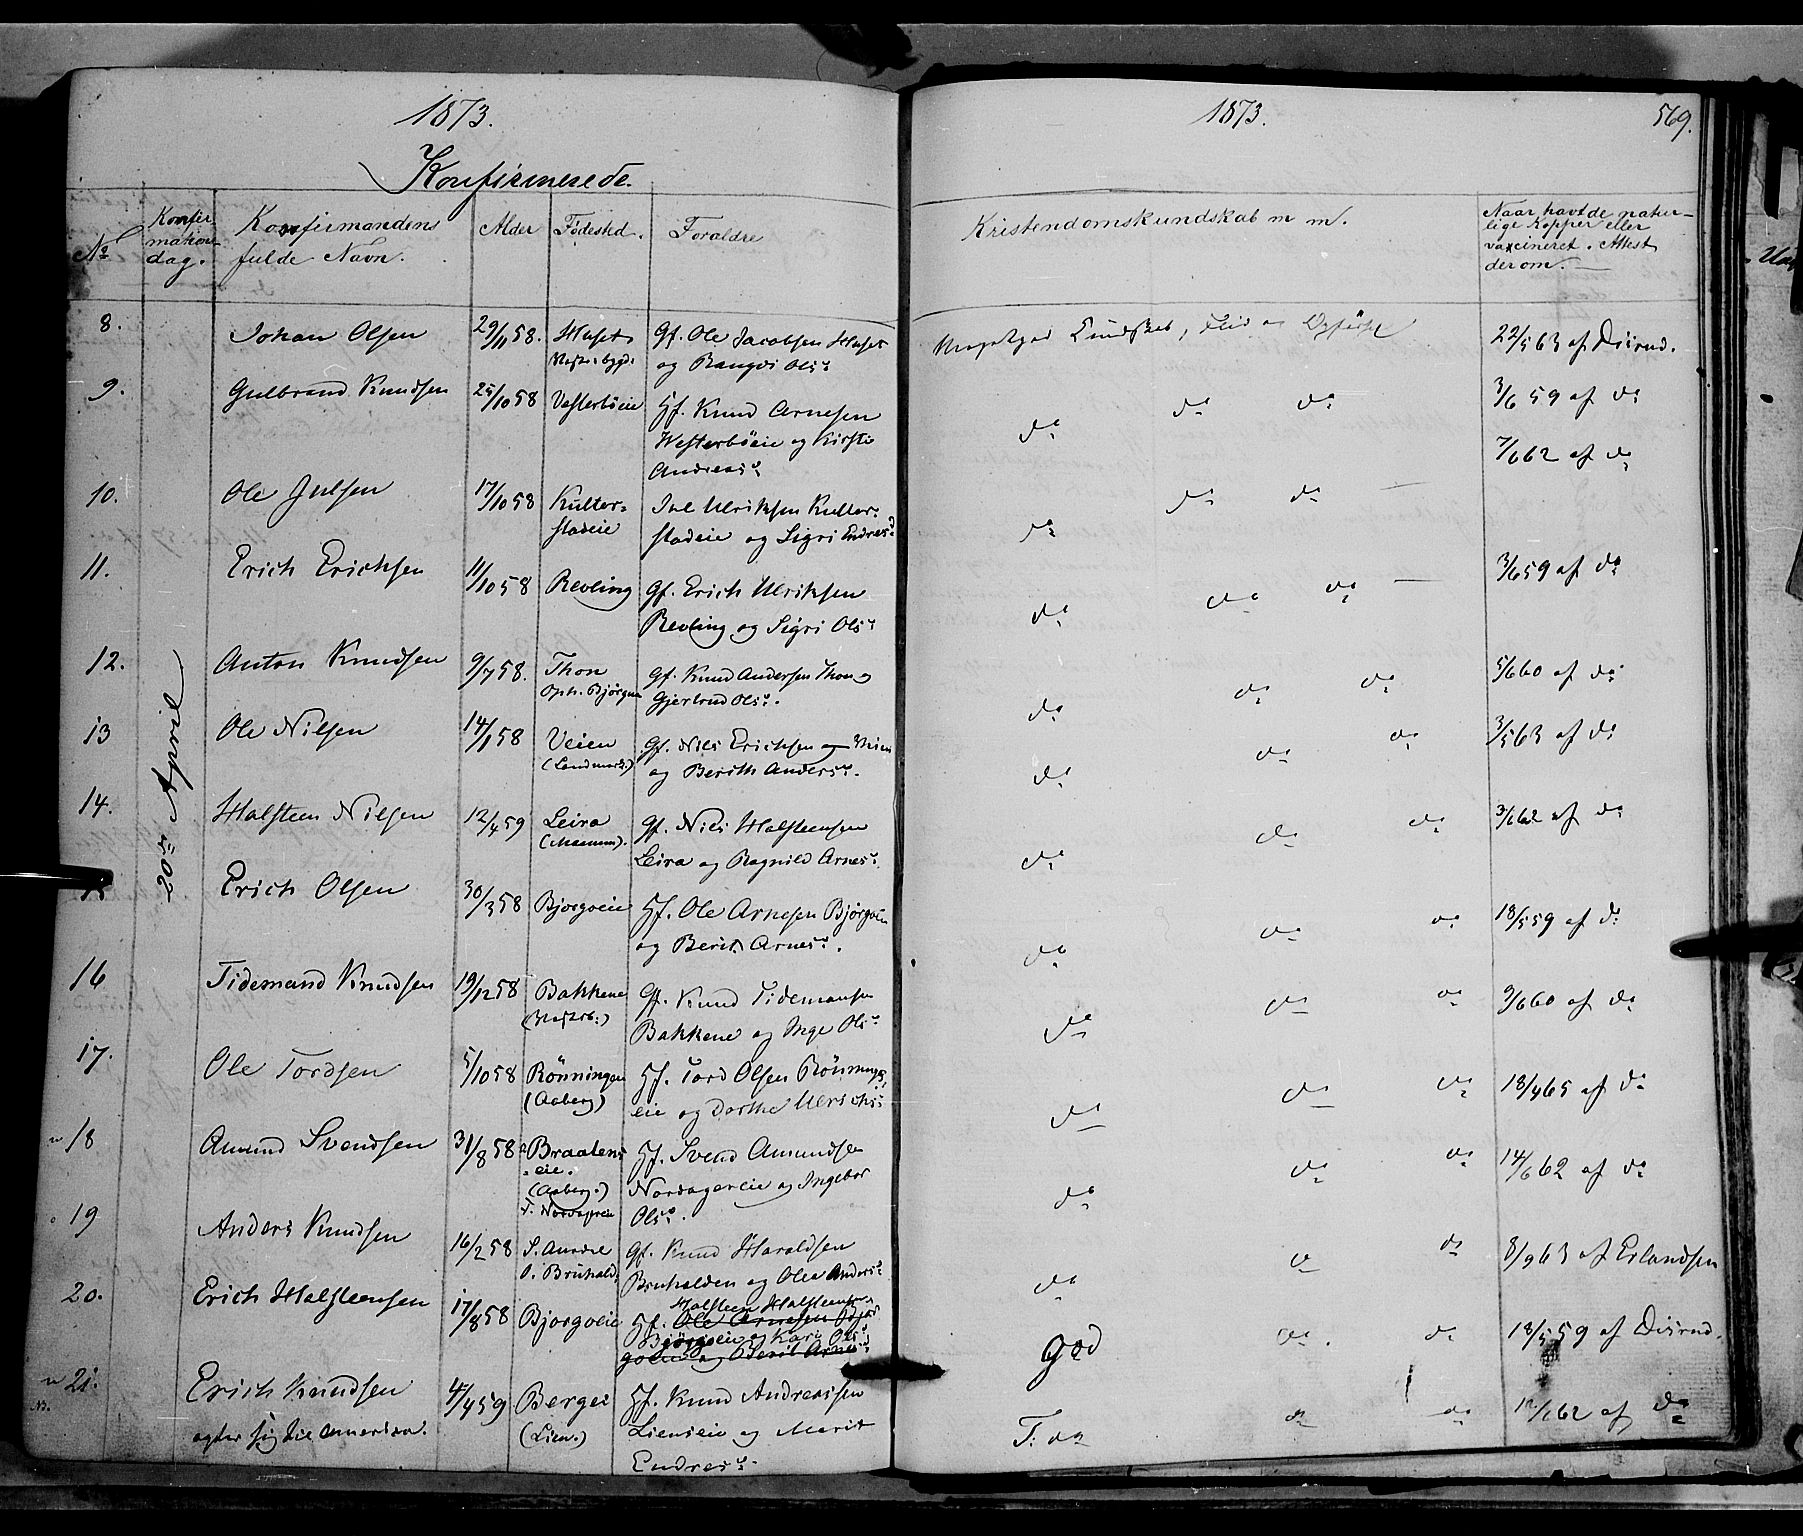 1873.
Konfirmerede.
No
Konfir
mations
dag.
Konfirmandens
fulde Navn.
Alder
Fødested.
Foraldre
20de April
8.
Johan Olsen
29/11 58.
Huset
Gf. Ole Jacobsen Huset
og Rangdi Olsd
9.
Gulbrand Knudsen
25/10 58
Vesterbøeie
Hf. Knud Arnesen
Westerbøeie og Kirsti
Andreasd
10.
Ole Julsen
17/10 58
Kulter-
stadeie
Jul Ulriksen Kulter-
stadeie og Sigri Endresd
11.
Erich Erichsen
11/10 58
Revling
Gf. Erich Ulriksen
Revling og Sigri Olsd
12.
Anton Knudsen
9/7 58.
Thon
Oph. Bjørgum
Gf. Knud Andersen Thon og
Gjertrud Olsd.
13
Ole Nilsen
14/1 58
Veien
Gf. Nils Erichsen
og Berith Andersd.
14.
Halsteen Nilsen
12/4 59
Leira
Gf. Nils Halsteensen
Leira og Ragnild Arnesd.
15
Erich Olsen
30/3 58
Bjorgoeie
Hf. Ole Arnesen Bjørgoeie
og Berit Arnesd.
16
Tidemand Knudsen
19/12 58
Bakkene
Gf. Knud Tidemansen
Bakkene og Inge Olsd
17.
Ole Tordsen
5/10 58
Rönningen
(Aaberg)
Hf. Tord Olsen Rönnings
eie og Dorthe Ulrichsd
18
Amund Svendsen
31/8 58
Braatens
eie.
(Aaberg.)
Hf. Svend Amundsen
Nordagereie og Ingebor
Olsd.
19
Anders Knudsen
16/2 58
S. Aurdal
Gf. Knud Haraldsen
Bruhalden og Olea Andersd
20.
Erich Halsteensen
17/8 58
Bjorgoeie
Halsteen Halsteensen
Hf. Ole Arnesen Bjør
Bjørgoeie og Kari Olsd
goeie og Berit Arnesd
21.
NB.
Erich Knudsen
agter sig til Amerika.
4/4 59
Berget
(Lien.)
Hf. Knud Andreassen
Lieneie og Marit
Endresd.
1873.
569.
Kristendomskundskab m m.
Naar havt de natur-
lige Kopper eller
vaxcineret. Attest
derom.
Meget god Kundskab, Flid og Opførsel
22/5 63 af Disrud.
do do do
3/6 59 af do
do do do
7/6 62 af do
do do do
3/6 59 af do
do do do
5/6 60 af do
do do do
3/5 63 af do
do do do
3/6 62 af do
do do do
18/5 59 af do
do do do
9/6 60 af do
do do do
18/4 65 af do
do do do
14/6 62 af do
do do do
8/9 63 af Erlandsen
god do. do
18/5 59 af Disrud.
T. do do do
62 af do